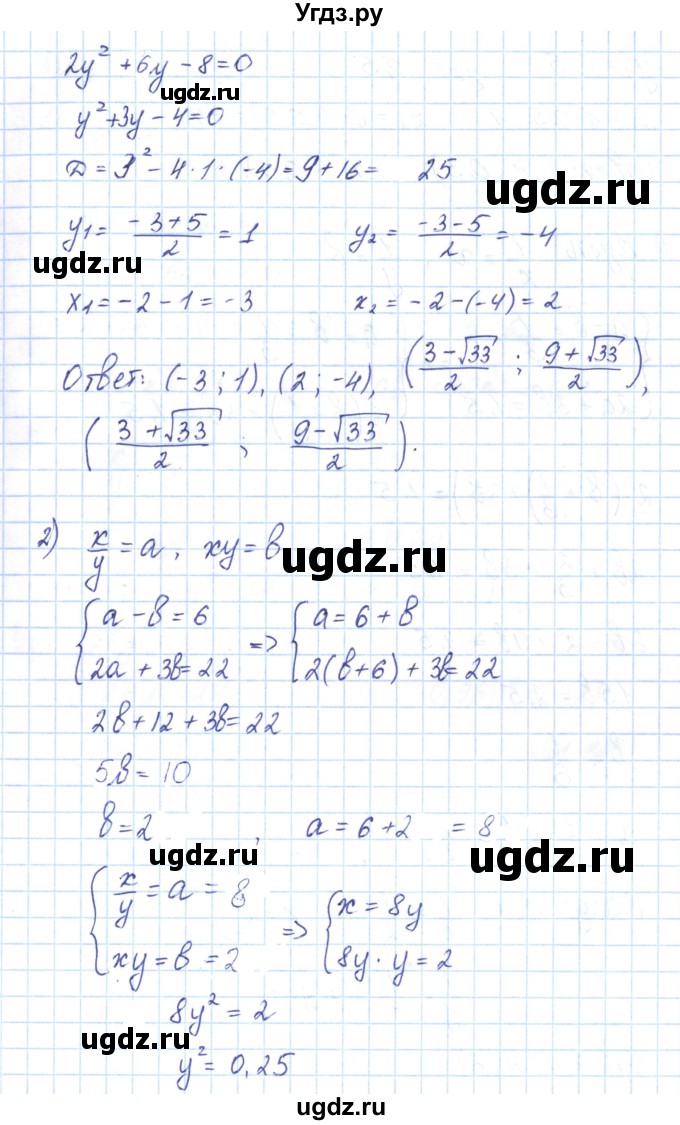 Угдз.ру
2y² + 6y - 8 = 0
ugdz.ru
y² + 3y - 4 = 0
D = 3² - 4 · 1 · (-4) = 9 + 16 = 25
ugdz.ru
y₁ = (-3 + 5)/2 = 1 y₂ = (-3 - 5)/2 = -4
ugdz.ru
x₁ = -2 - 1 = -3 x₂ = -2 - (-4) = 2
Ответ: (-3; 1), (2; -4), ((3 - √33)/2 ; (9 + √33)/2),
((3 + √33)/2 ; (9 - √33)/2).
2) x/y = a, xy = b
ugdz.ru
{ a - b = 6 => { a = 6 + b
{ 2a + 3b = 22 { 2(b + 6) + 3b = 22
2b + 12 + 3b = 22
5b = 10
b = 2, a = 6 + 2 = 8
ugdz.ru
ugdz.ru
{ x/y = a = 8 => { x = 8y
{ xy = b = 2 { 8y · y = 2
8y² = 2
ugdz.ru
y² = 0,25
ugdz.ru